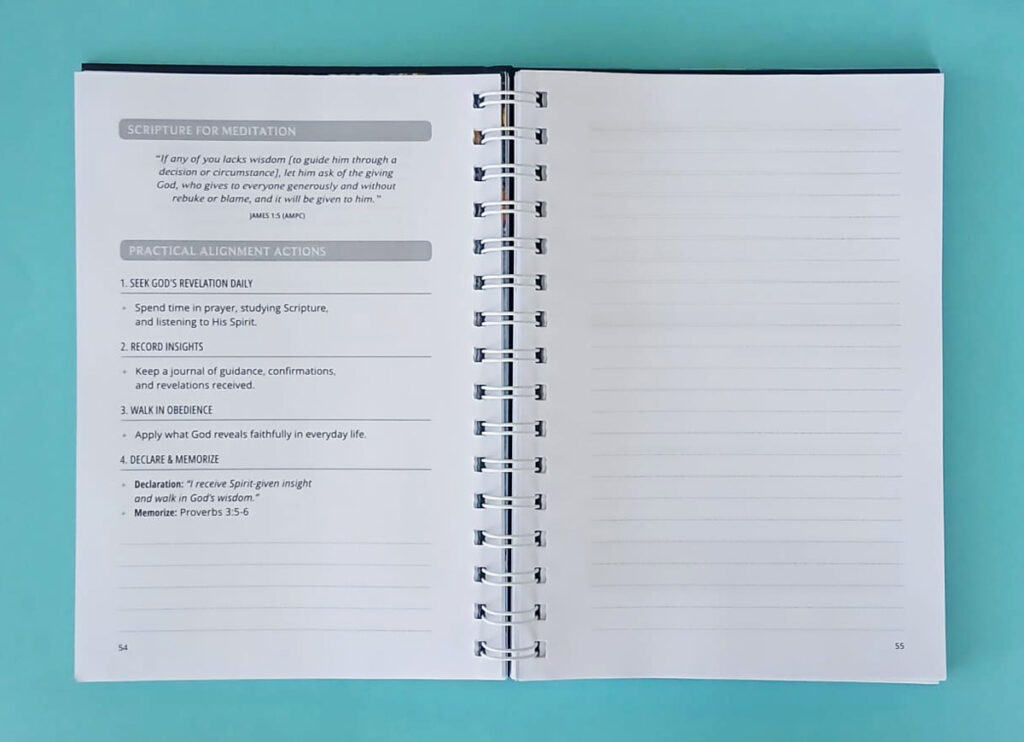 SCRIPTURE FOR MEDITATION
"If any of you lacks wisdom [to guide him through a
decision or circumstance], let him ask of the giving
God, who gives to everyone generously and without
rebuke or blame, and it will be given to him."
JAMES 1:5 (AMPC)
PRACTICAL ALIGNMENT ACTIONS
1. SEEK GOD'S REVELATION DAILY
• Spend time in prayer, studying Scripture,
and listening to His Spirit.
2. RECORD INSIGHTS
• Keep a journal of guidance, confirmations,
and revelations received.
3. WALK IN OBEDIENCE
• Apply what God reveals faithfully in everyday life.
4. DECLARE & MEMORIZE
• Declaration: "I receive Spirit-given insight
and walk in God's wisdom."
• Memorize: Proverbs 3:5-6
54
55